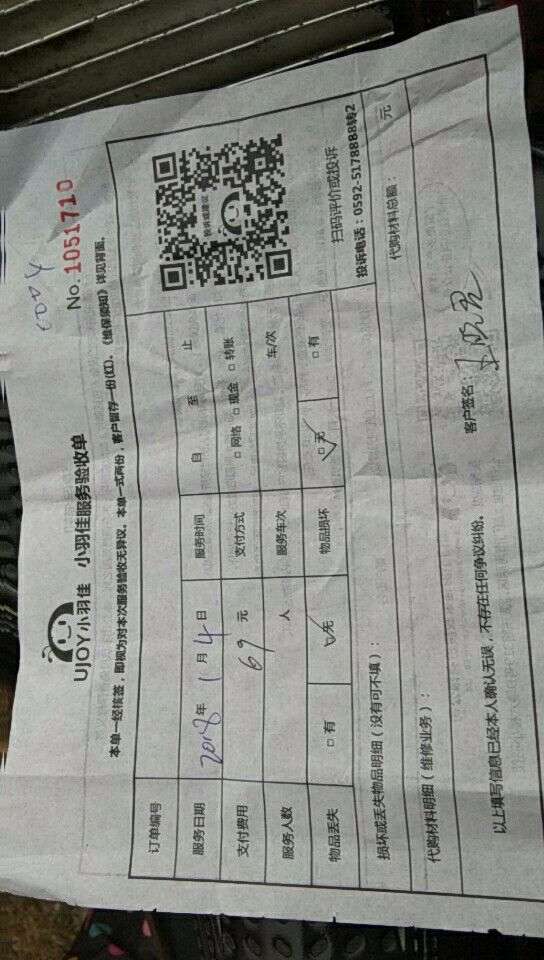 6004
No. 1051710
UJOY小羽佳 小羽佳服务验收单
本单一经核签，即视为对本次服务验收无异议。本单一式两份，客户留存一份(红)。《维保须知》详见背面。
订单编号
投诉或建议
服务日期 2018年 1月 4日 服务时间 自 至 止
支付费用 69 元 支付方式 □ 网络 □ 现金 □ 转账
服务人数 人 服务车次 车/次
物品丢失 □ 有 □ 无 物品损坏 □ 无 □ 有
扫码评价或投诉
投诉电话：0592-5178888转2
损坏或丢失物品明细（没有可不填）：
代购材料明细（维修业务）： 代购材料总额： 元
以上填写信息已经本人确认无误，不存在任何争议纠纷。 客户签名：